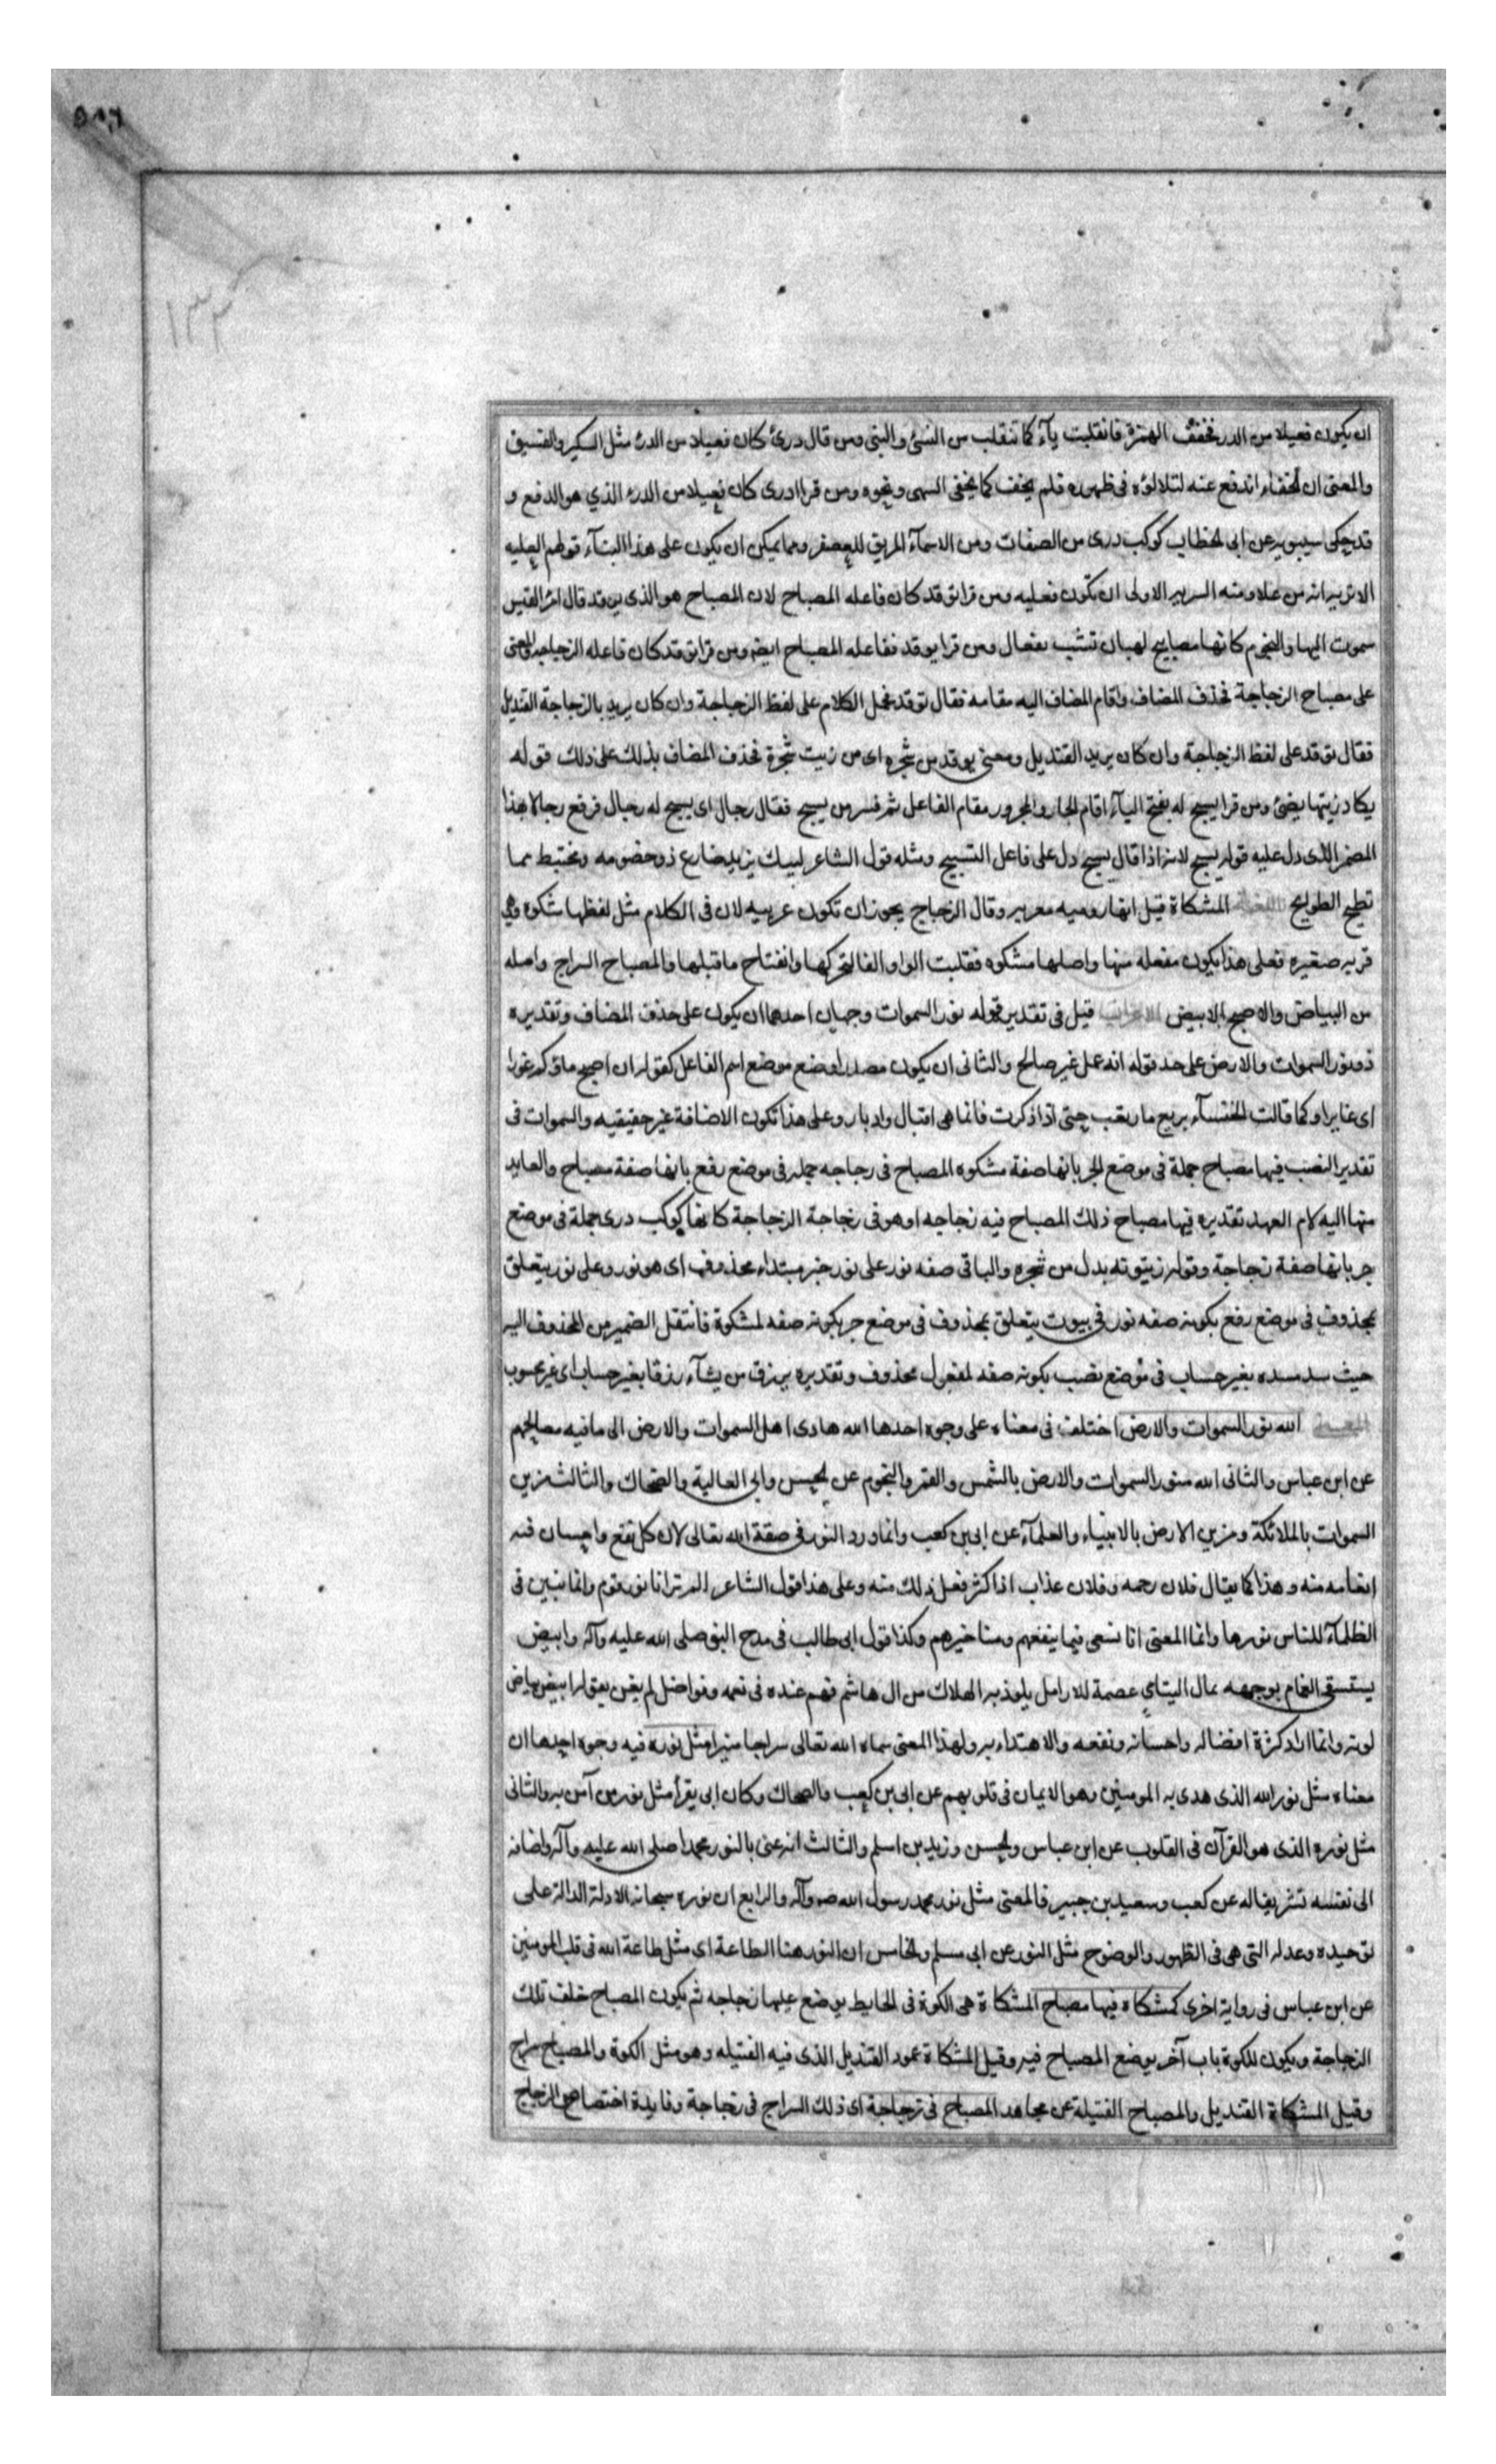 ان يكون فعيلا من الدر فخففت الهمزة فانقلبت يآء كما تنقلب من النسئ والنبى ومن قال درئ كان فعيلا من الدرء مثل السكير والفسيق
والمعنى ان الخفاء اندفع عنه لتلالؤه فى ظهوره فلم يخف كما يخفى السهى ونحوه ومن قرا درى كان فعيلا من الدرء الذي هو الدفع و
قد حكى سيبويه عن ابى الخطاب كوكب درى من الصفات ومن الاسمآء المريق للعصفر ومما يمكن ان يكون على هذا البنآء قولهم العليه
الا تريه انه من علا ومنه السريه الاولى ان تكون فعليه ومن قرا توقد كان فاعله المصباح لان المصباح هو الذى يوقد قال امرؤ القيس
سموت اليها والنجوم كانها مصابيح لهبان تشب بقفال ومن قرا يوقد ففاعله المصباح ايضا ومن قرا توقد كان فاعله الزجاجه والمعنى
على مصباح الزجاجة فحذف المضاف واقام المضاف اليه مقامه فقال توقد فحمل الكلام على لفظ الزجاجة وان كان يريد بالزجاجة القنديل
فقال توقد على لفظ الزجاجة وان كان يريد القنديل ومعنى يوقد من شجره اى من زيت شجرة فحذف المضاف يدلك على ذلك قوله
يكاد زيتها يضئ ومن قرا يسبح له بفتح اليآء اقام الجار والمجرور مقام الفاعل ثم فسر من يسبح فقال رجال اى يسبح له رجال فرفع رجالا بهذا
المضمر الذى دل عليه قوله يسبح لانه اذا قال يسبح دل على فاعل التسبيح ومثله قول الشاعر ليبك يزيد ضارع ذو خصومه ومختبط مما
تطيح الطوايح اللغة المشكاة قيل انها روميه معربه وقال الزجاج يجوز ان تكون عربيه لان فى الكلام مثل لفظها شكوه وهى
قربه صغيره فعلى هذا يكون مفعله منها واصلها مشكوه فقلبت الواو الفا لتحركها وانفتاح ماقبلها والمصباح السراج واصله
من البياض والاصبح الابيض الاعراب قيل فى تقدير قوله نور السموات وجهان احدهما ان يكون على حذف المضاف وتقديره
ذو نور السموات والارض على حد قوله انه عمل غير صالح والثانى ان يكون مصدرا وضع موضع اسم الفاعل كقوله ان اصبح ماؤكم غورا
اى غايرا وكما قالت الخنسآء ترتع ما رتعت حتى اذا ذكرت فانما هى اقبال وادبار وعلى هذا تكون الاضافة غير حقيقيه والسموات فى
تقدير النصب فيها مصباح جملة فى موضع الجر بانها صفة مشكوه المصباح فى زجاجه جمله فى موضع رفع بانها صفة مصباح والعايد
منها اليه لام العهد تقديره فيها مصباح ذلك المصباح فيه زجاجه او هو فى زجاجة الزجاجة كانها كوكب درى جملة فى موضع
جر بانها صفة زجاجة وقوله زيتونه بدل من شجره والباقى صفه نور على نور خبر مبتداء محذوف اى هو نور وعلى نور يتعلق
بمحذوف فى موضع رفع بكونه صفه نور فى بيوت يتعلق بمحذوف فى موضع جر بكونه صفه لمشكوة فانتقل الضمير من المحذوف اليه
حيث سد مسده بغير حساب فى موضع نصب بكونه صفه لمفعول محذوف وتقديره يرزق من يشآء رزقا بغير حساب اى غير محسوب
المعنى الله نور السموات والارض اختلف فى معناه على وجوه احدها الله هادى اهل السموات والارض الى مافيه مصالحهم
عن ابن عباس والثانى الله منور السموات والارض بالشمس والقمر والنجوم عن الحسن وابى العالية والضحاك والثالث مزين
السموات بالملائكة ومزين الارض بالانبياء والعلمآء عن ابى بن كعب وانما ورد النور فى صفة الله تعالى لان كل نفع واحسان فيه
انعامه منه وهذا كما يقال فلان رحمه وفلان عذاب اذا كثر فعل ذلك منه وعلى هذا قول الشاعر الم تر انا نور قوم وانما يبين فى
الظلمآء للناس نورها وانما المعنى انا نسعى فيما ينفعهم ومنا خيرهم وكذا قول ابى طالب فى مدح النبى صلى الله عليه وآله وابيض
يستسقى الغمام بوجهه ثمال اليتامى عصمة للارامل يلوذ به الهلاك من ال هاشم فهم عنده فى نعمه وفواضل لم يعن بقوله ابيض بياض
لونه وانما اراد كثرة افضاله واحسانه ونفعه والاهتداء به ولهذا المعنى سماه الله تعالى سراجا منيرا مثل نوره فيه وجوه احدها ان
معناه مثل نور الله الذى هدى به المومنين وهو الايمان فى قلوبهم عن ابى بن كعب والضحاك وكان ابى يقرأ مثل نور من آمن به والثانى
مثل نوره الذى هو القرآن فى القلوب عن ابن عباس والحسن وزيد بن اسلم والثالث انه عنى بالنور محمدا صلى الله عليه وآله واضافه
الى نفسه تشريفا له عن كعب وسعيد بن جبير فالمعنى مثل نور محمد رسول الله صه وآله والرابع ان نوره سبحانه الادلة الدالة على
توحيده وعدله التى هى فى الظهور والوضوح مثل النور عن ابى مسلم والخامس ان النور هنا الطاعة اى مثل طاعة الله فى قلب المومنين
عن ابن عباس فى رواية اخرى كمشكاه فيها مصباح المشكاة هى الكوة فى الحايط يوضع عليها زجاجه ثم يكون المصباح خلف تلك
الزجاجة ويكون للكوة باب آخر يوضع المصباح فيه وقيل المشكاة عمود القنديل الذى فيه الفتيله وهو مثل الكوة والمصباح سراج
وقيل المشكاة القنديل والمصباح الفتيلة عن مجاهد المصباح فى زجاجة اى ذلك السراج فى زجاجة وفايدة اختصاص الزجاج